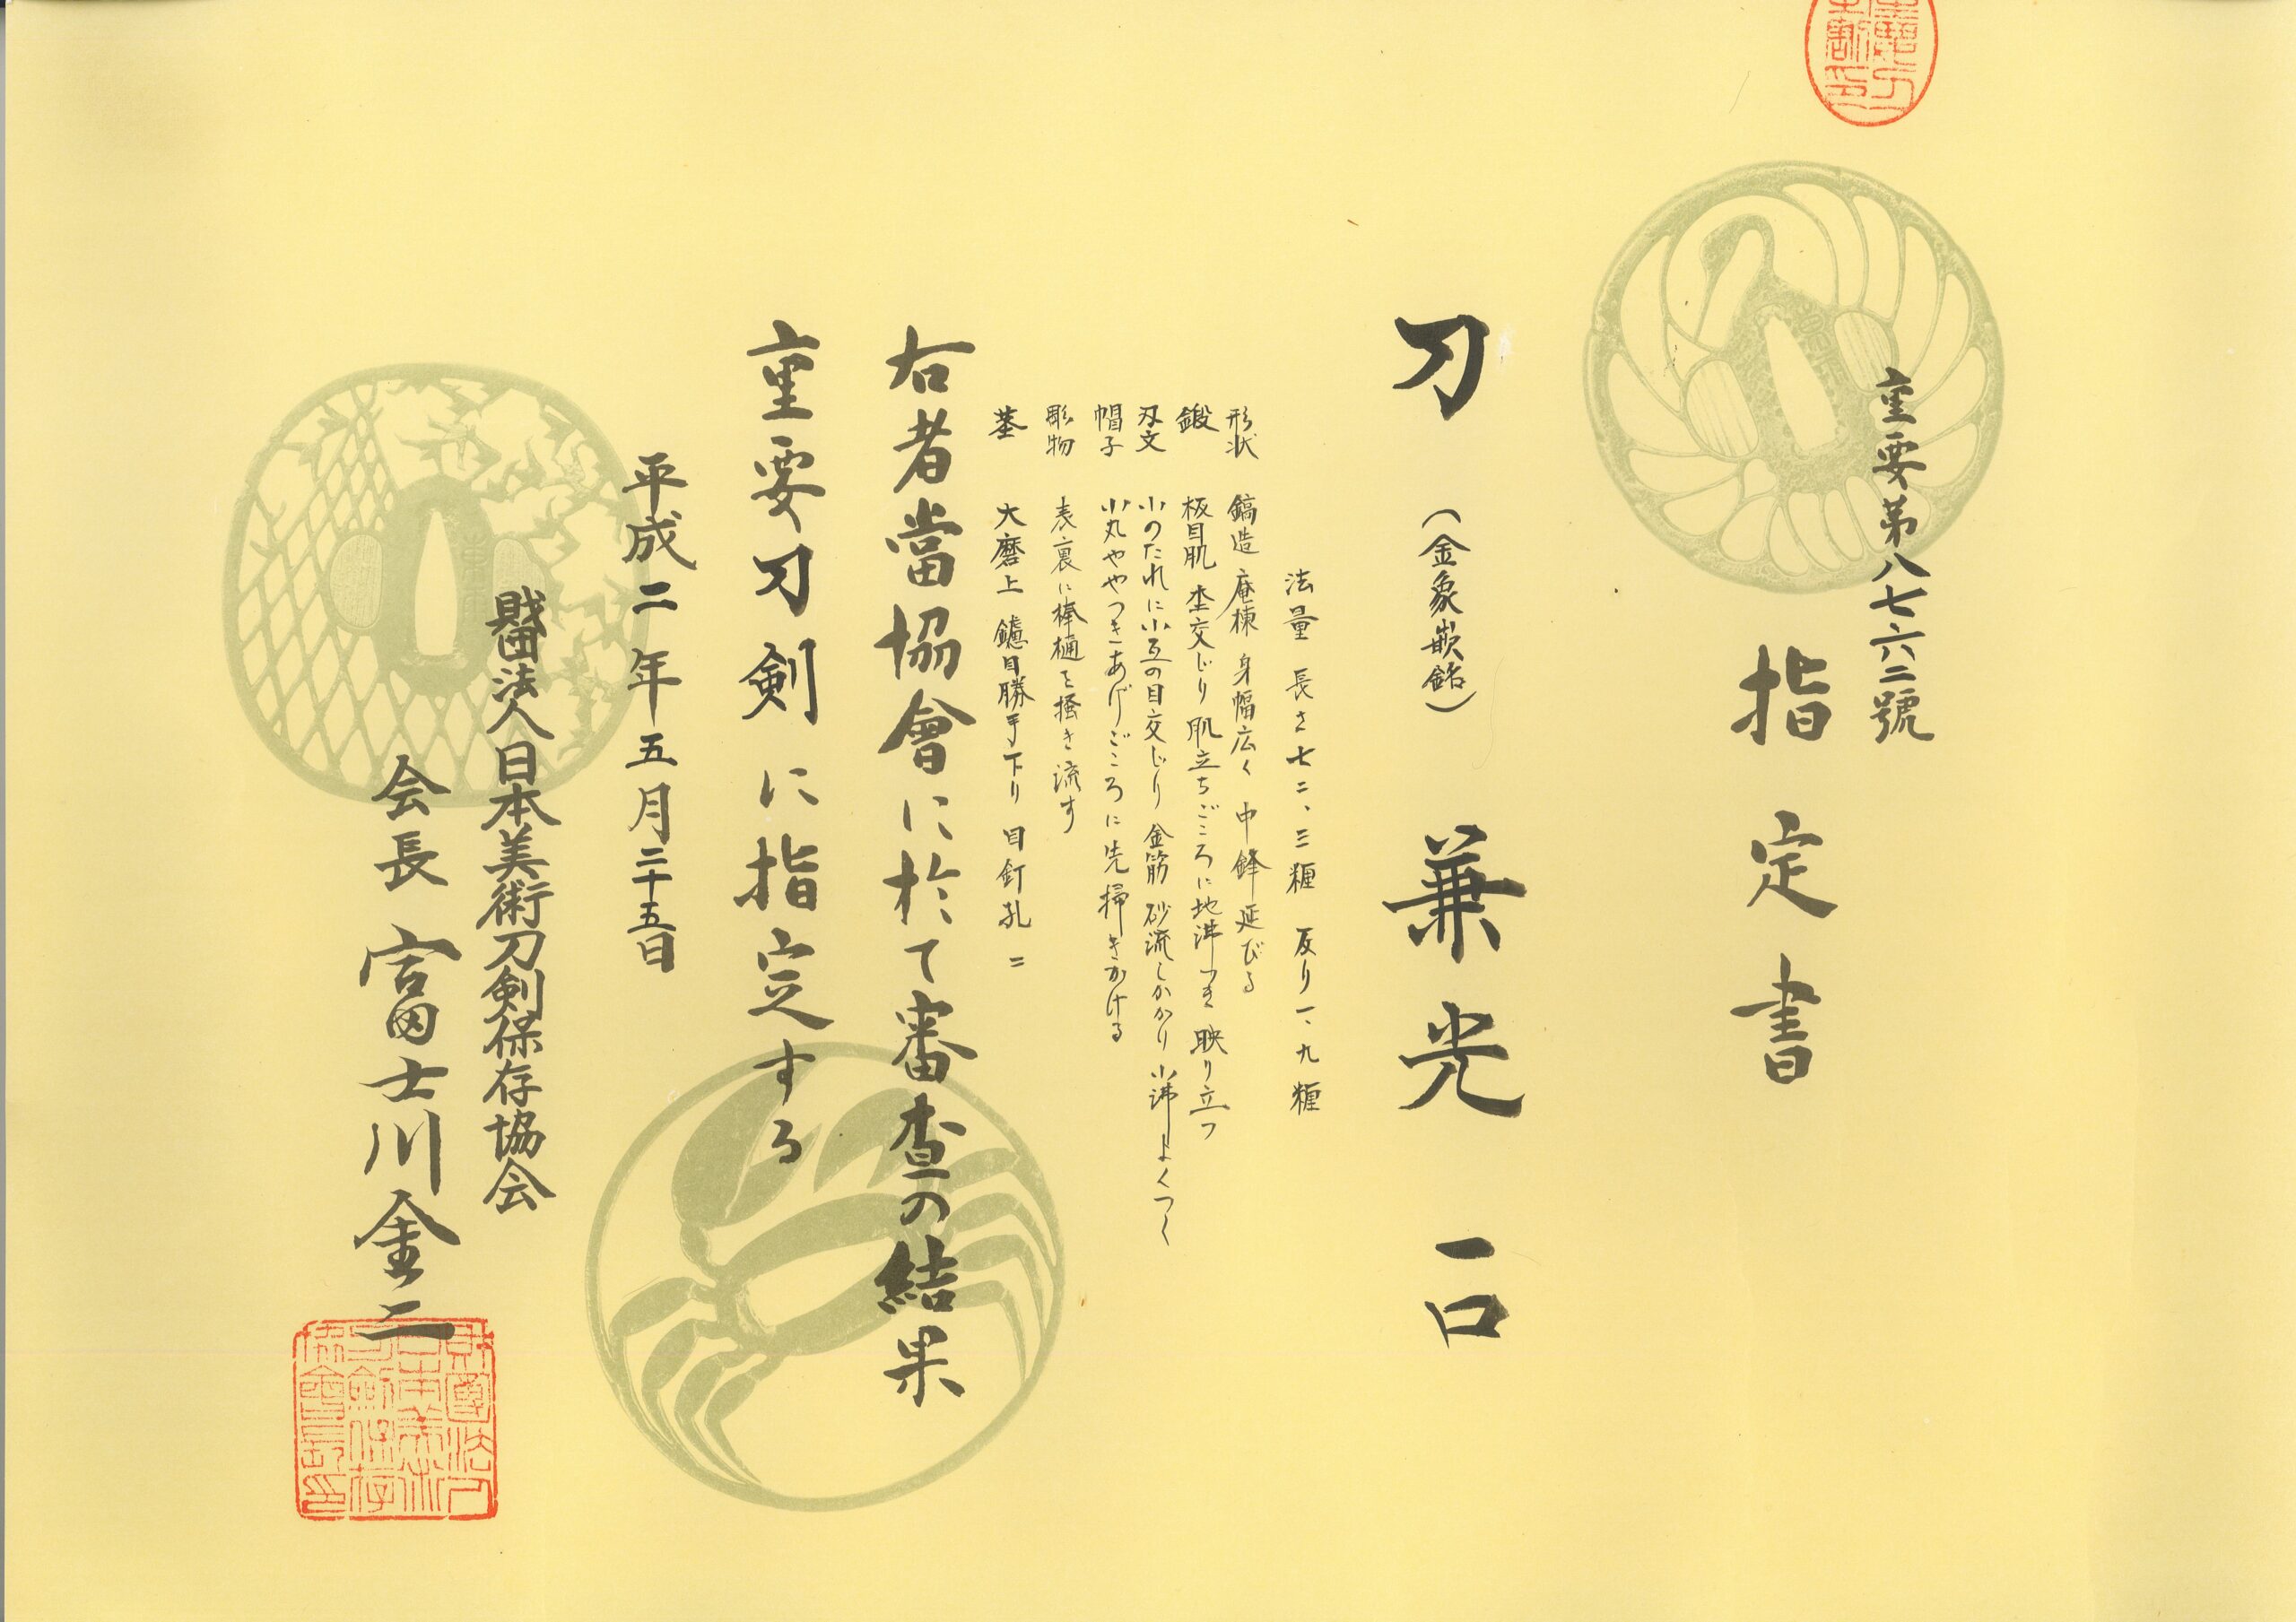 重要第八七六二號
指定書
刀 (金象嵌銘) 兼光 一口
法量 長さ七二、三糎 反り一、九糎
形状 鎬造 庵棟 身幅広く 中鋒延びる
鍛 板目肌 杢交じり 肌立ちごころに地沸つき 映り立つ
刃文 小のたれに小互の目交じり 金筋 砂流しかかり 小沸よくつく
帽子 小丸ややつきあげごころに先掃きかける
彫物 表裏に棒樋を掻き流す
茎 大磨上 鑢目勝手下り 目釘孔二
右者當協會に於て審査の結果
重要刀剣に指定する
平成二年五月二十五日
財団法人日本美術刀剣保存協会
会長 富士川金二